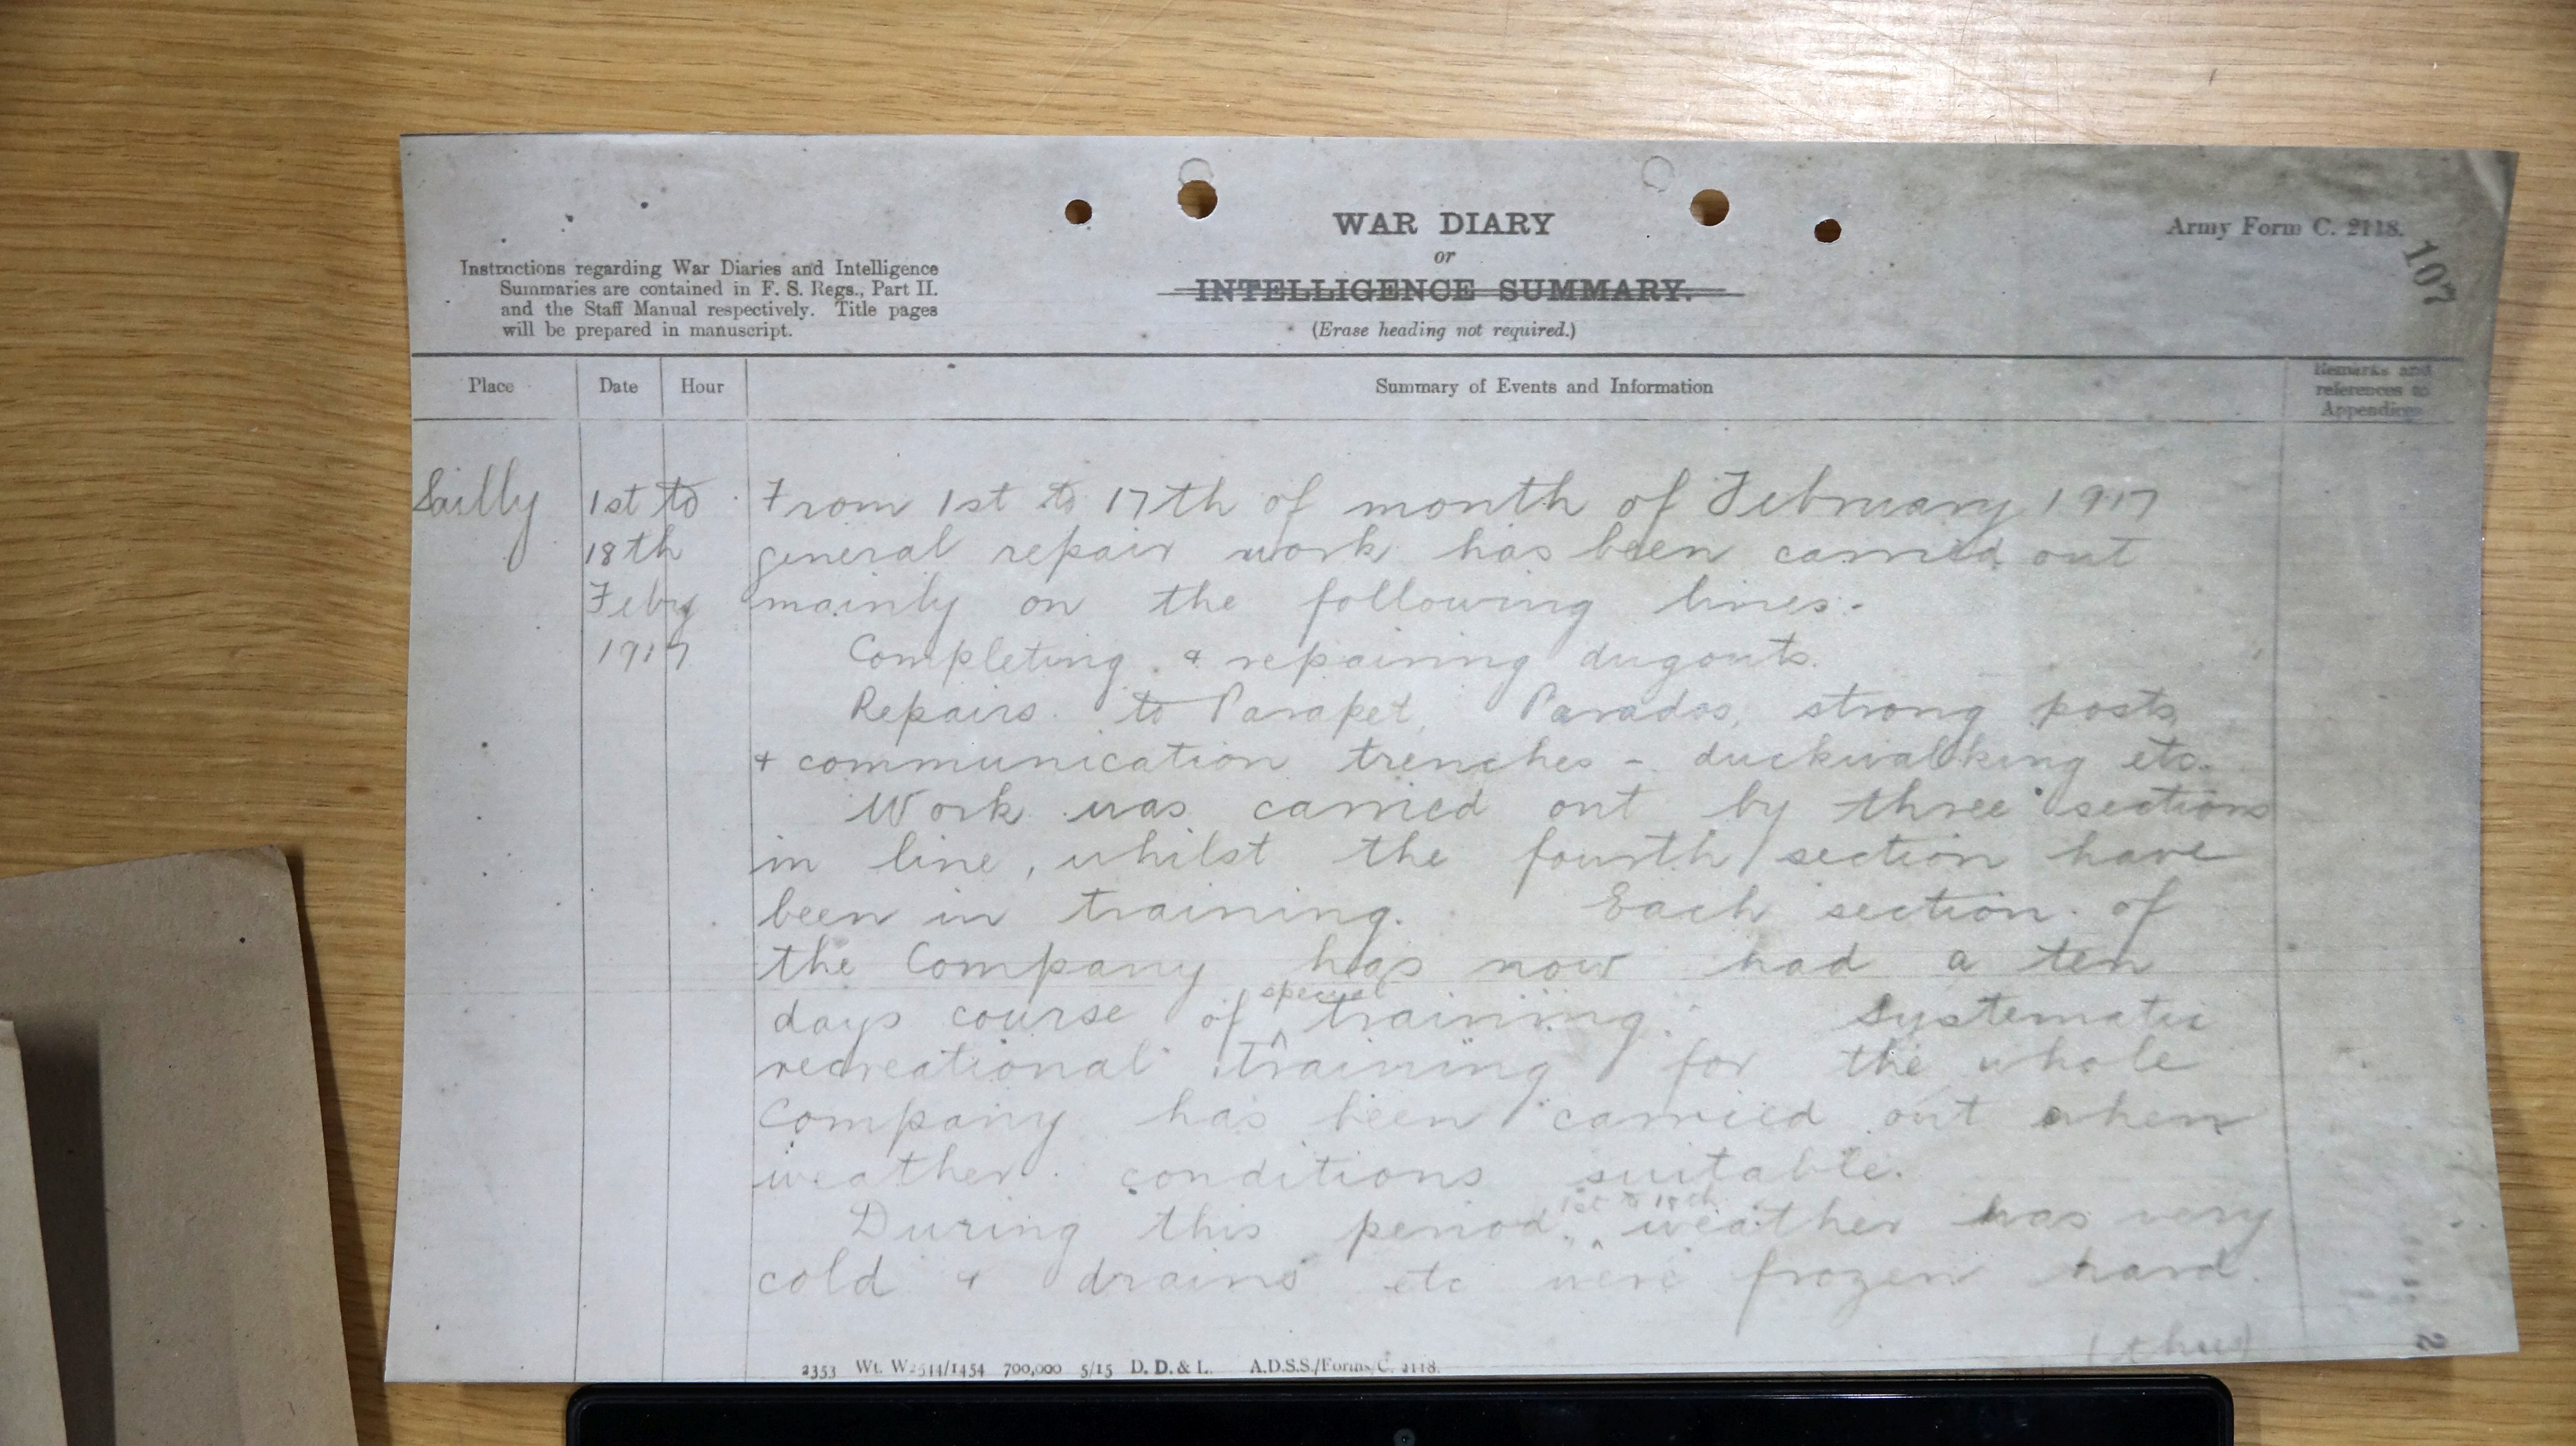 WAR DIARY
or
INTELLIGENCE SUMMARY.
(Erase heading not required.)
Army Form C. 2118.
107
Instructions regarding War Diaries and Intelligence
Summaries are contained in F. S. Regs., Part II.
and the Staff Manual respectively. Title pages
will be prepared in manuscript.
Place Date Hour Summary of Events and Information Remarks and
references to
Appendices
Sailly 1st to From 1st to 17th of month of February 1917
18th general repair work has been carried out
Feby mainly on the following lines:-
1917 Completing & repairing dugouts.
Repairs to Parapet, Parados, strong posts
& communication trenches - duckwalking etc.
Work was carried out by three sections
in line, whilst the fourth section have
been in training. Each section of
the Company has now had a ten
days course of special training. Systematic
recreational training for the whole
Company has been carried out when
weather conditions suitable.
During this period 1st to 18th weather was very
cold & drains etc were frozen hard.
2353 Wt. W2544/1454 700,000 5/15 D. D. & L. A.D.S.S./Forms/C. 2118.
2